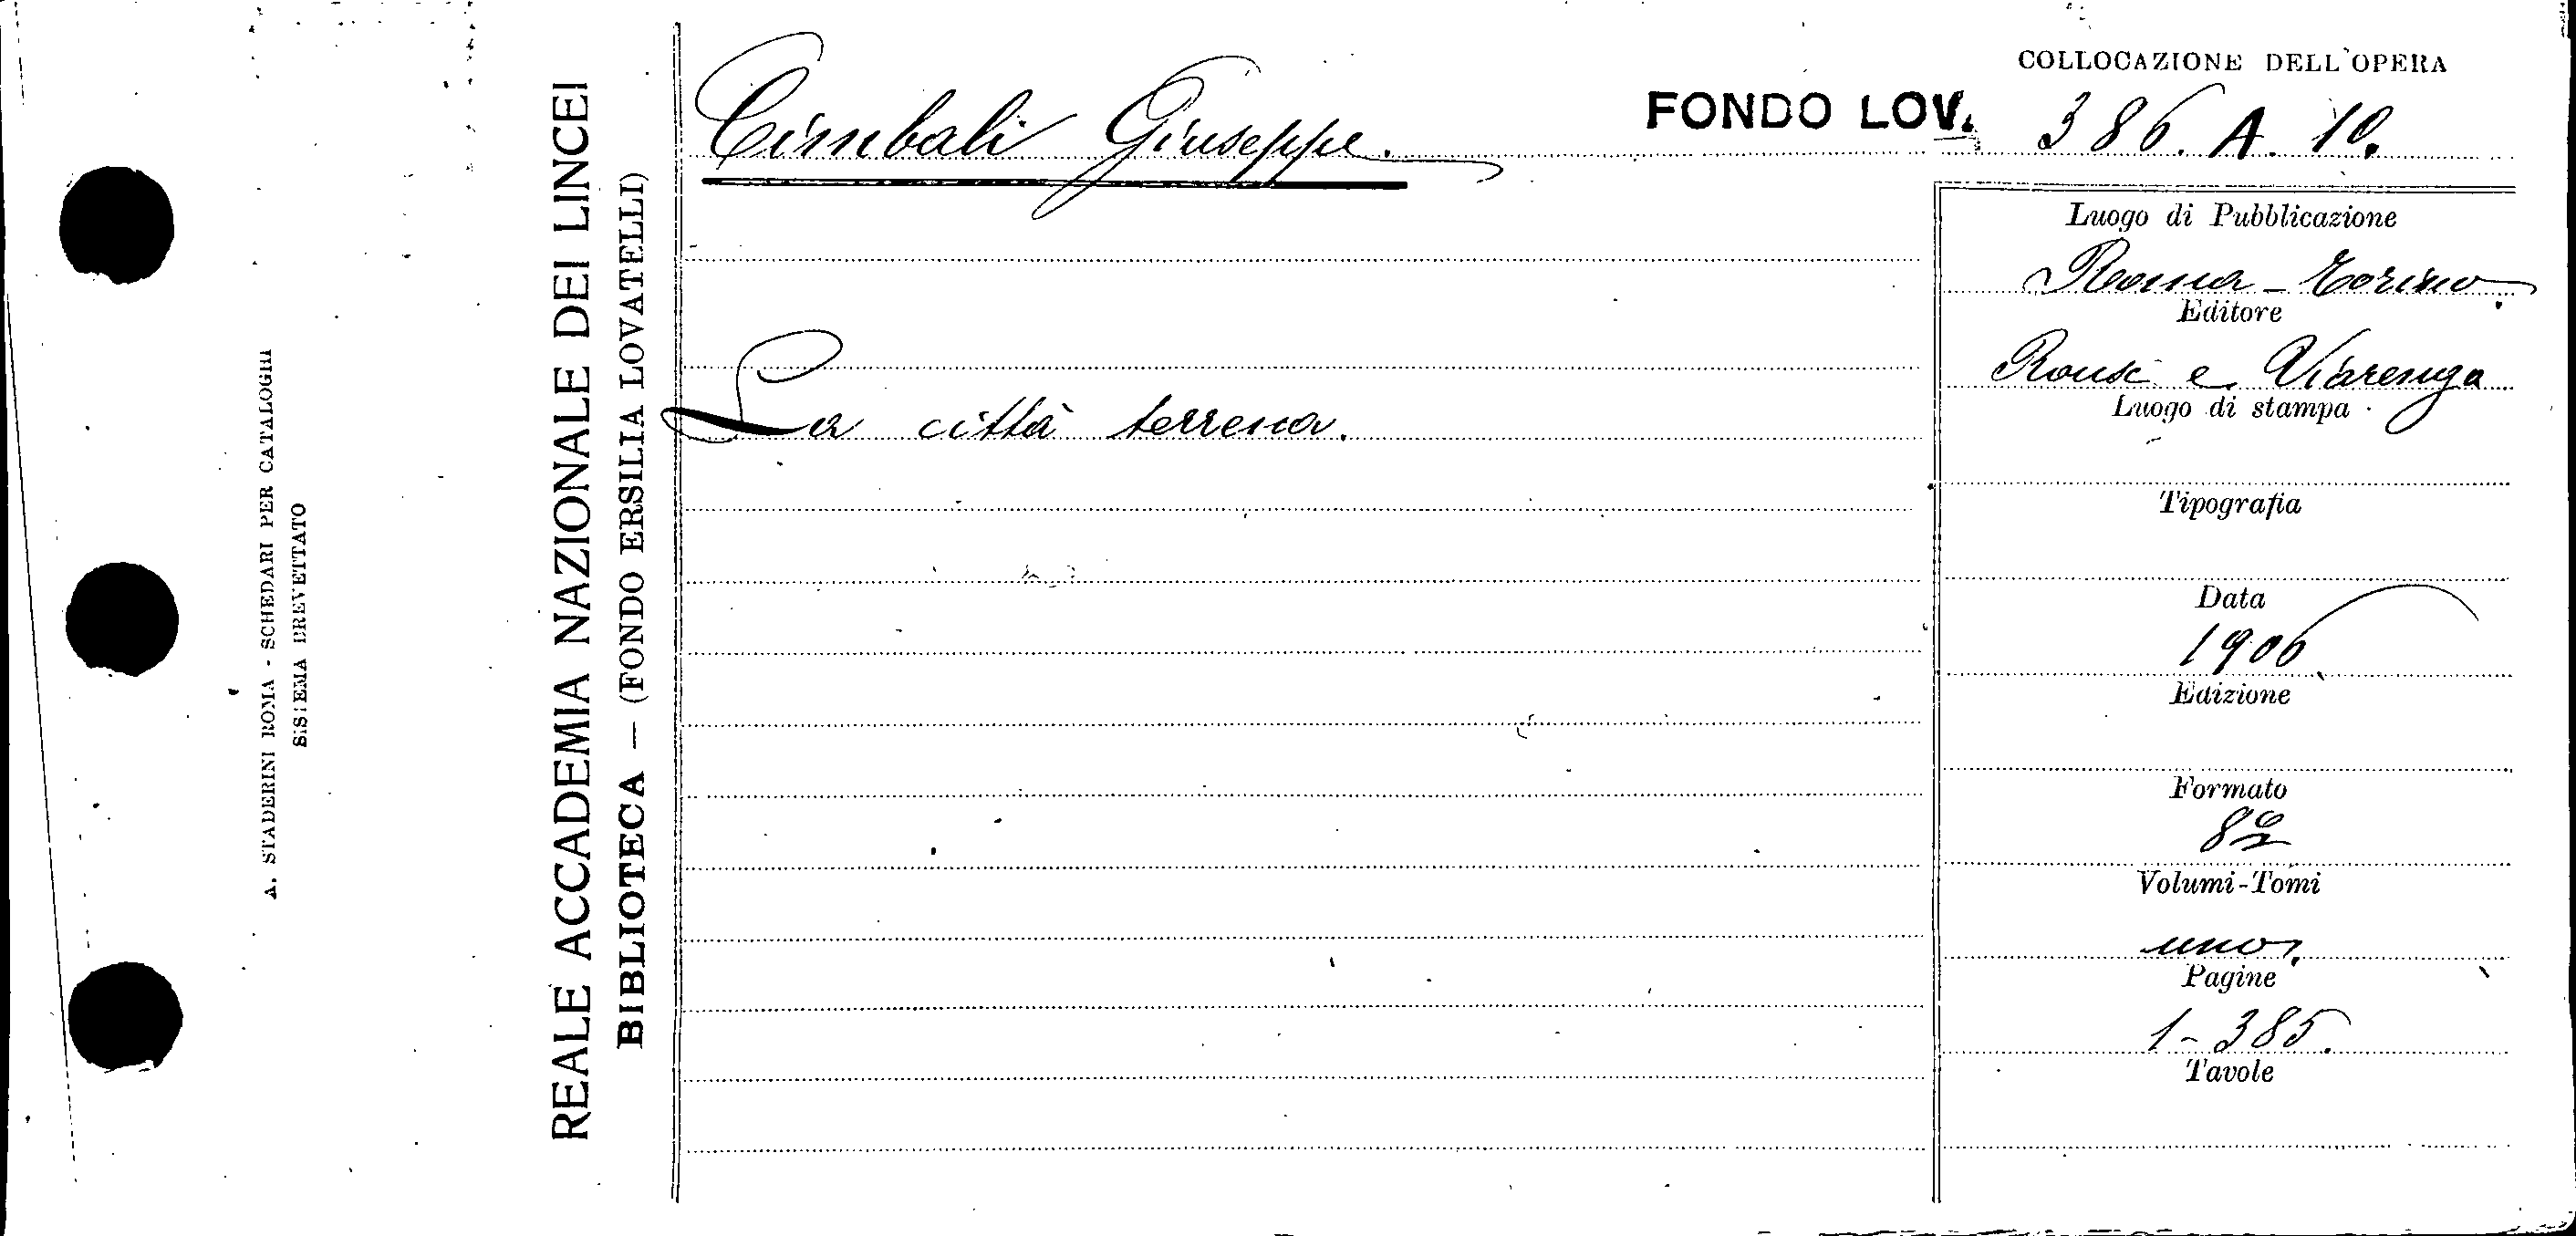 A. STADERINI ROMA - SCHEDARI PER CATALOGHI
SISTEMA BREVETTATO
REALE ACCADEMIA NAZIONALE DEI LINCEI
BIBLIOTECA — (FONDO ERSILIA LOVATELLI)
COLLOCAZIONE DELL'OPERA
Cimbali Giuseppe. FONDO LOV. 386. A. 10.
La città terrena.
Luogo di Pubblicazione
Roma - Torino.
Editore
Roux e Viarengo
Luogo di stampa
Tipografia
Data
1906
Edizione
Formato
8º
Volumi-Tomi
uno.
Pagine
1-385.
Tavole